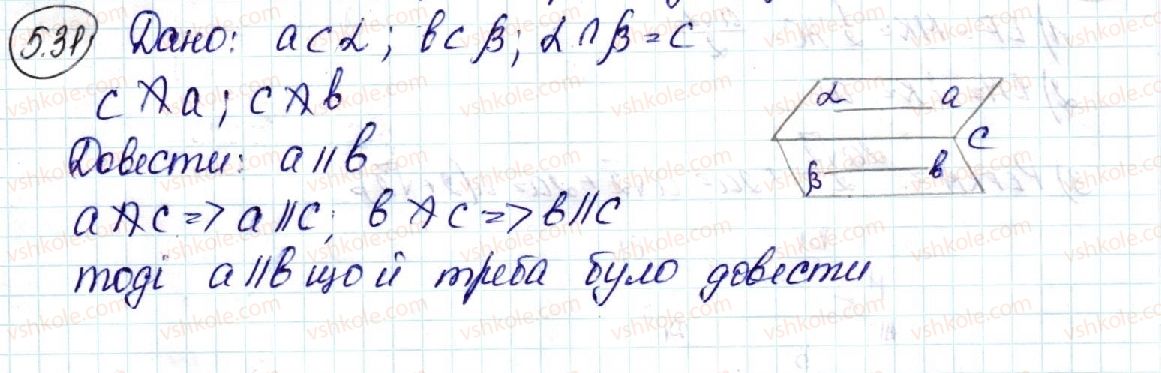 5.31 Дано: a⊂α; b⊂β; α∩β=c
c∩̸a; c∩̸b
Довести: a∥b
a∩̸c=>a∥c; b∩̸c=>b∥c
тоді a∥b що й треба було довести
α a
c
β b